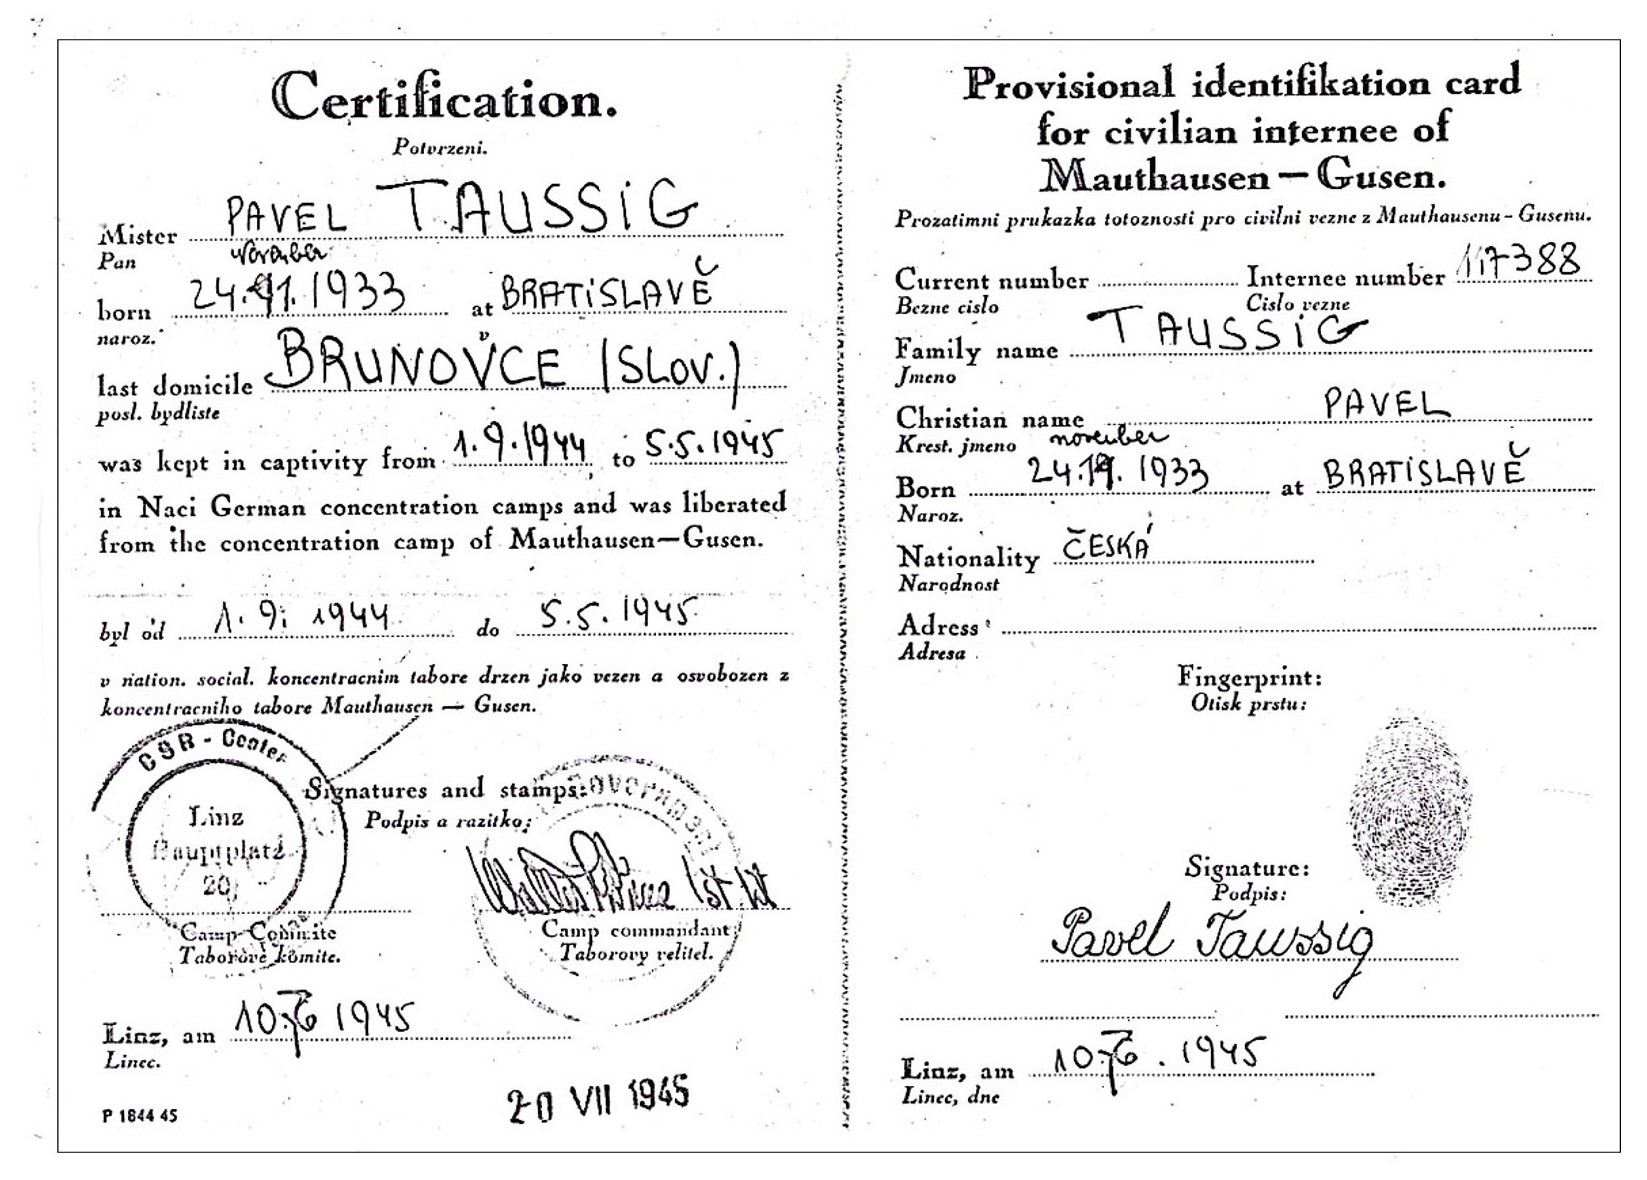 Certification.
Potvrzeni.
Mister PAVEL TAUSSIG
Pan
november
born 24.11.1933 at BRATISLAVĚ
naroz.
last domicile BRUNOVCE (SLOV.)
posl. bydliste
was kept in captivity from 1.9.1944 to 5.5.1945
in Naci German concentration camps and was liberated
from the concentration camp of Mauthausen—Gusen.
byl od 1.9. 1944 do 5.5.1945
v nation. social. koncentracnim tabore drzen jako vezen a osvobozen z
koncentracniho tabore Mauthausen — Gusen.
CSR - Center
Linz
Hauptplatz
20
Signatures and stamps:
Podpis a razitko:
Government
1st Lt
Camp-Comitte
Taborove komite.
Camp commandant
Taborovy velitel.
Linz, am 10. 1945
Linec.
20 VII 1945
P 1844 45
Provisional identifikation card
for civilian internee of
Mauthausen — Gusen.
Prozatimni prukazka totoznosti pro civilni vezne z Mauthausenu - Gusenu.
Current number Internee number 117388
Bezne cislo Cislo vezne
Family name TAUSSIG
Jmeno
Christian name PAVEL
Krest. jmeno
november
Born 24.11. 1933 at BRATISLAVĚ
Naroz.
Nationality ČESKÁ
Narodnost
Adress
Adresa
Fingerprint:
Otisk prstu:
Signature:
Podpis:
Pavel Taussig
Linz, am 10. 1945
Linec, dne